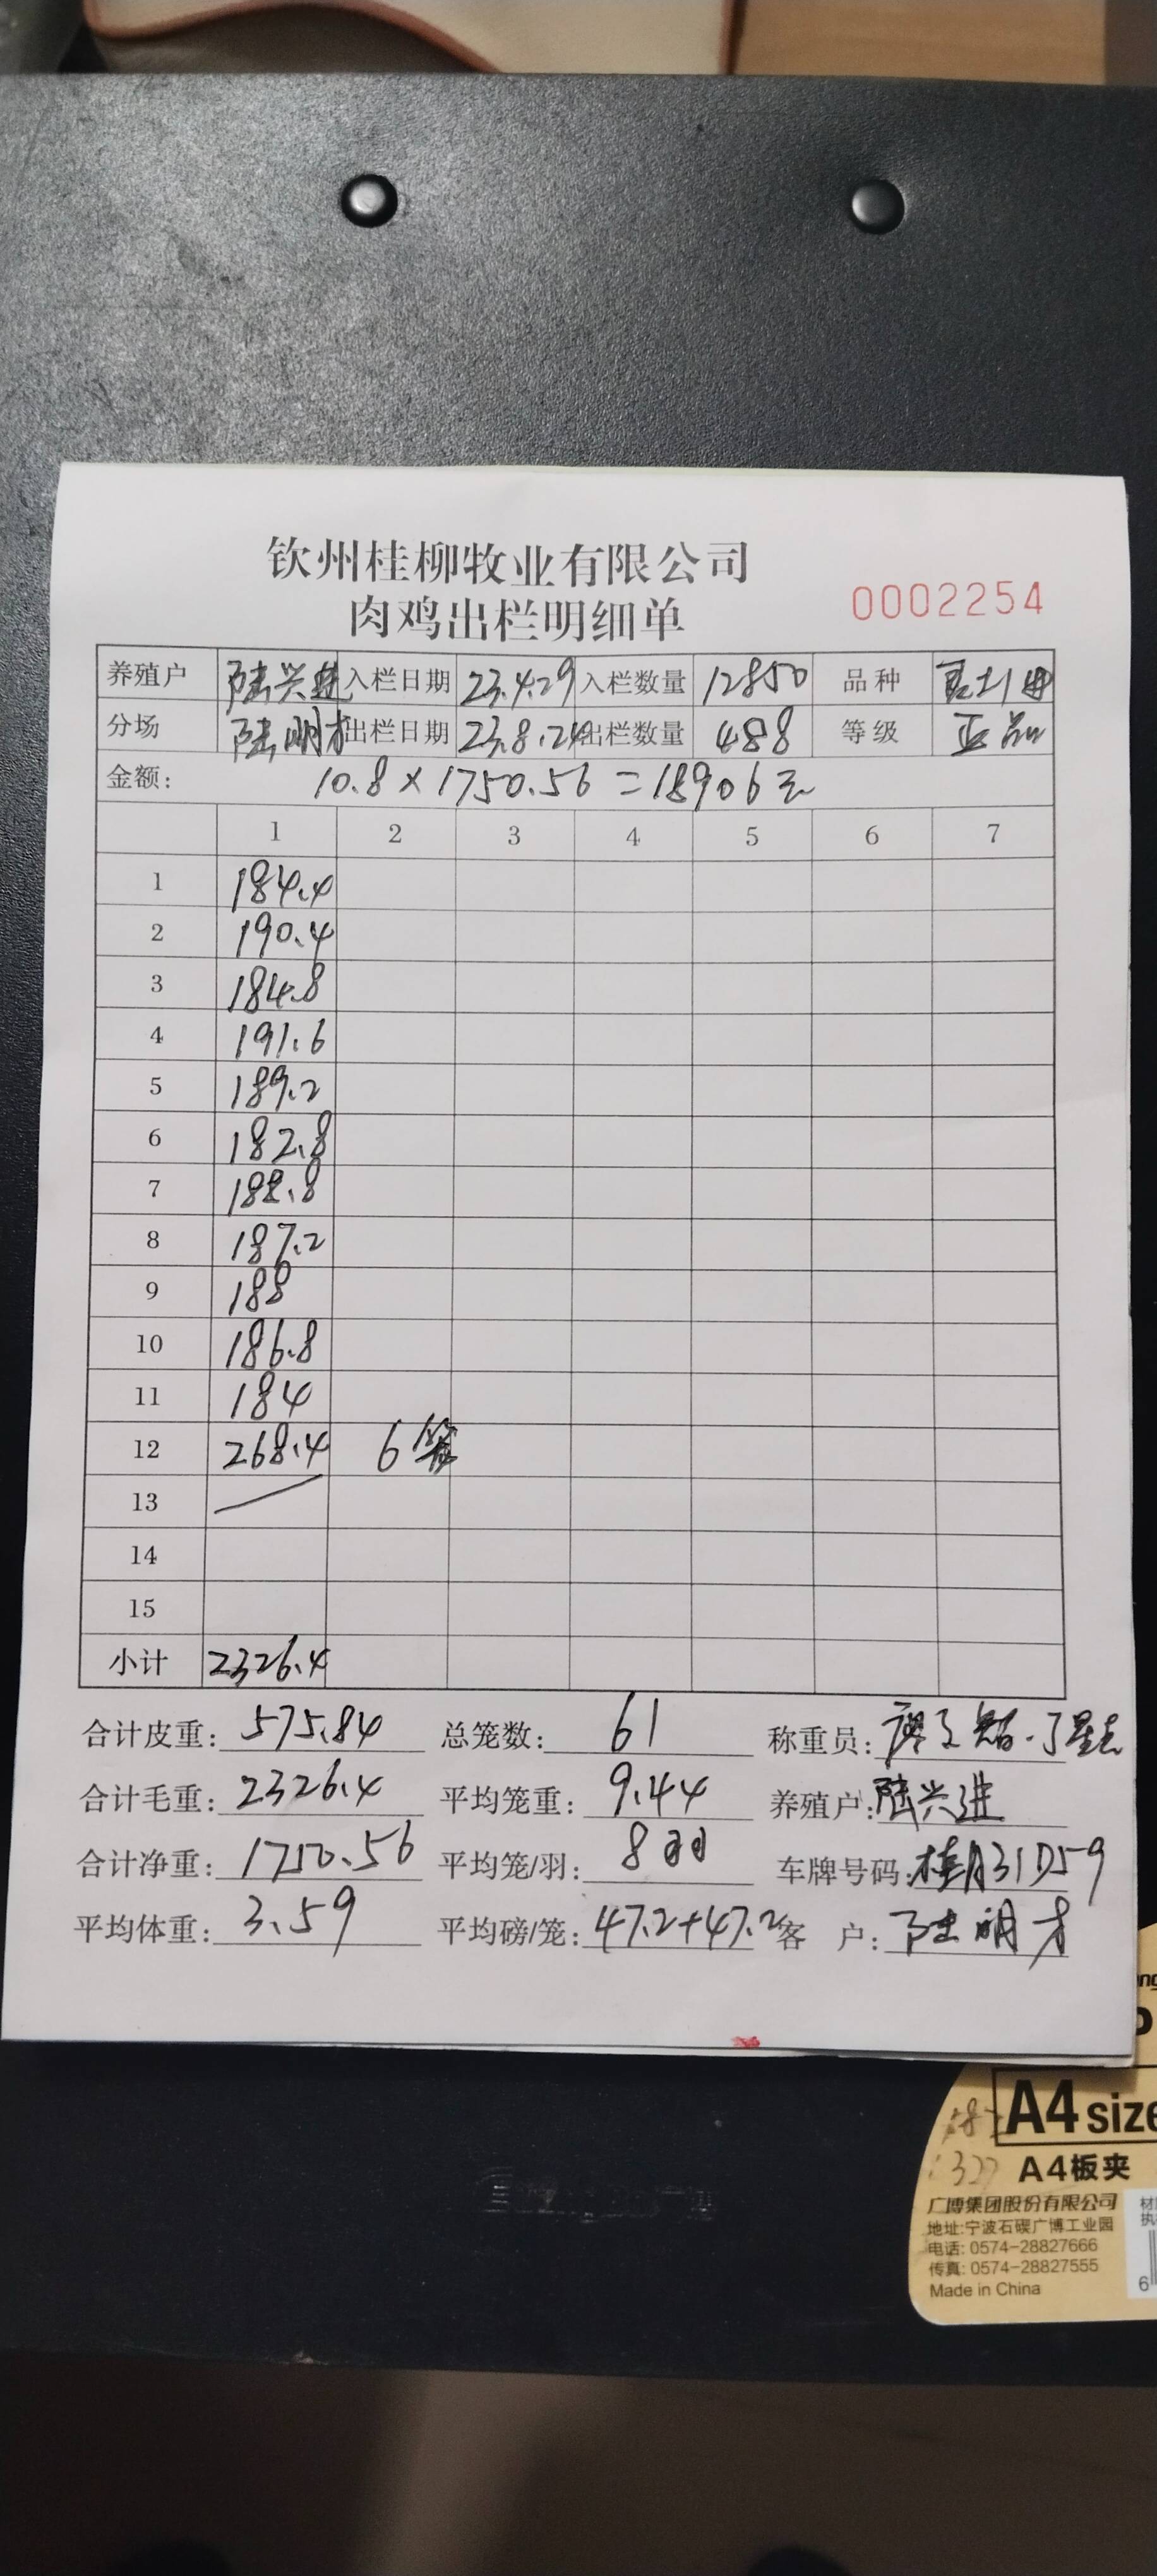 钦州桂柳牧业有限公司
肉鸡出栏明细单
0002254
养殖户 陆兴进 入栏日期 23.4.29 入栏数量 12850 品种
分场 陆明才 出栏日期 23.8.24 出栏数量 488 等级
金额: 10.8×1750.56=18906元
1 2 3 4 5 6 7
1 184.4
2 190.4
3 184.8
4 191.6
5 189.2
6 182.8
7 188.8
8 187.2
9 188
10 186.8
11 184
12 268.4 6笼
13
14
15
小计 2326.4
合计皮重: 575.84 总笼数: 61 称重员:
合计毛重: 2326.4 平均笼重: 9.44 养殖户: 陆兴进
合计净重: 1750.56 平均笼/羽: 8羽 车牌号码:
平均体重: 3.59 平均磅/笼: 47.2+47.2 客 户: 陆明才
A4 size
A4板夹
广博集团股份有限公司
地址:宁波石碶广博工业园
电话: 0574-28827666
传真: 0574-28827555
Made in China